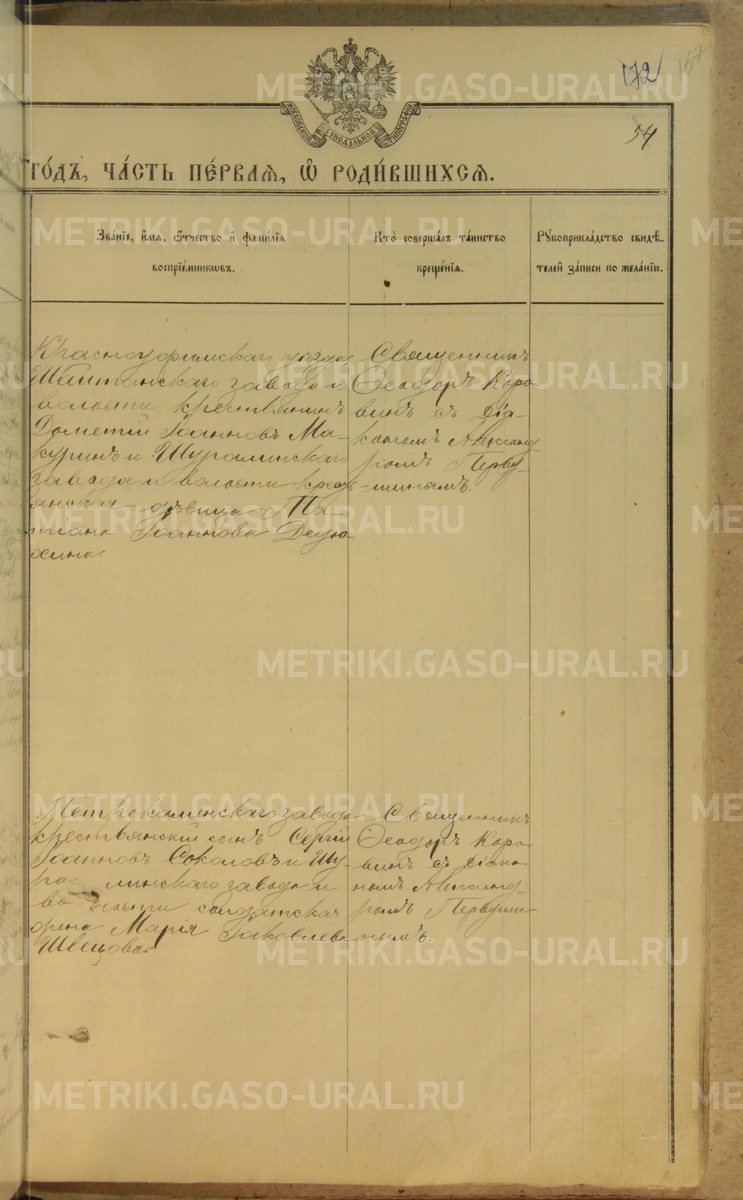 172 157
МОСКОВСКОЙ СѴНОДАЛЬНОЙ ТИПОГРАФІИ
54
ГО́ДЪ, ЧА́СТЬ ПЕ́РВАѦ, Ѡ҆ РОДИ́ВШИХСѦ.
Зва́нїе, и҆́мѧ, ѻ҆́тчество и҆ фами́лїѧ
воспрїе́мникѡвъ.
Кто̀ соверша́лъ та́инство
креще́нїѧ.
Рꙋкоприкла́дство свидѣ́-
телей за́писи по жела́нїю.
Красноуфимскаго уѣзда
Шайтанскаго завода и
волости крестьянинъ
Дометій Іоанновъ Ма-
куринъ и Шуралинскаго
завода и волости кресть-
янская дѣвица Та-
тіана Іоаннова
Священникъ
Ѳеодоръ Коро
винъ съ діа-
кономъ Александ
ромъ Перву
шинымъ.
Петрокаменскаго завода
крестьянскій сынъ Сергій
Іоанновъ Соколовъ и Шу-
ра линскаго завода и
во лости солдатская
жена Марія Іаковлева
Швецова.
Священникъ
Ѳеодоръ Коро-
винъ съ діако-
номъ Александ-
ромъ Первуши-
нымъ.
METRIKI.GASO-URAL.RU